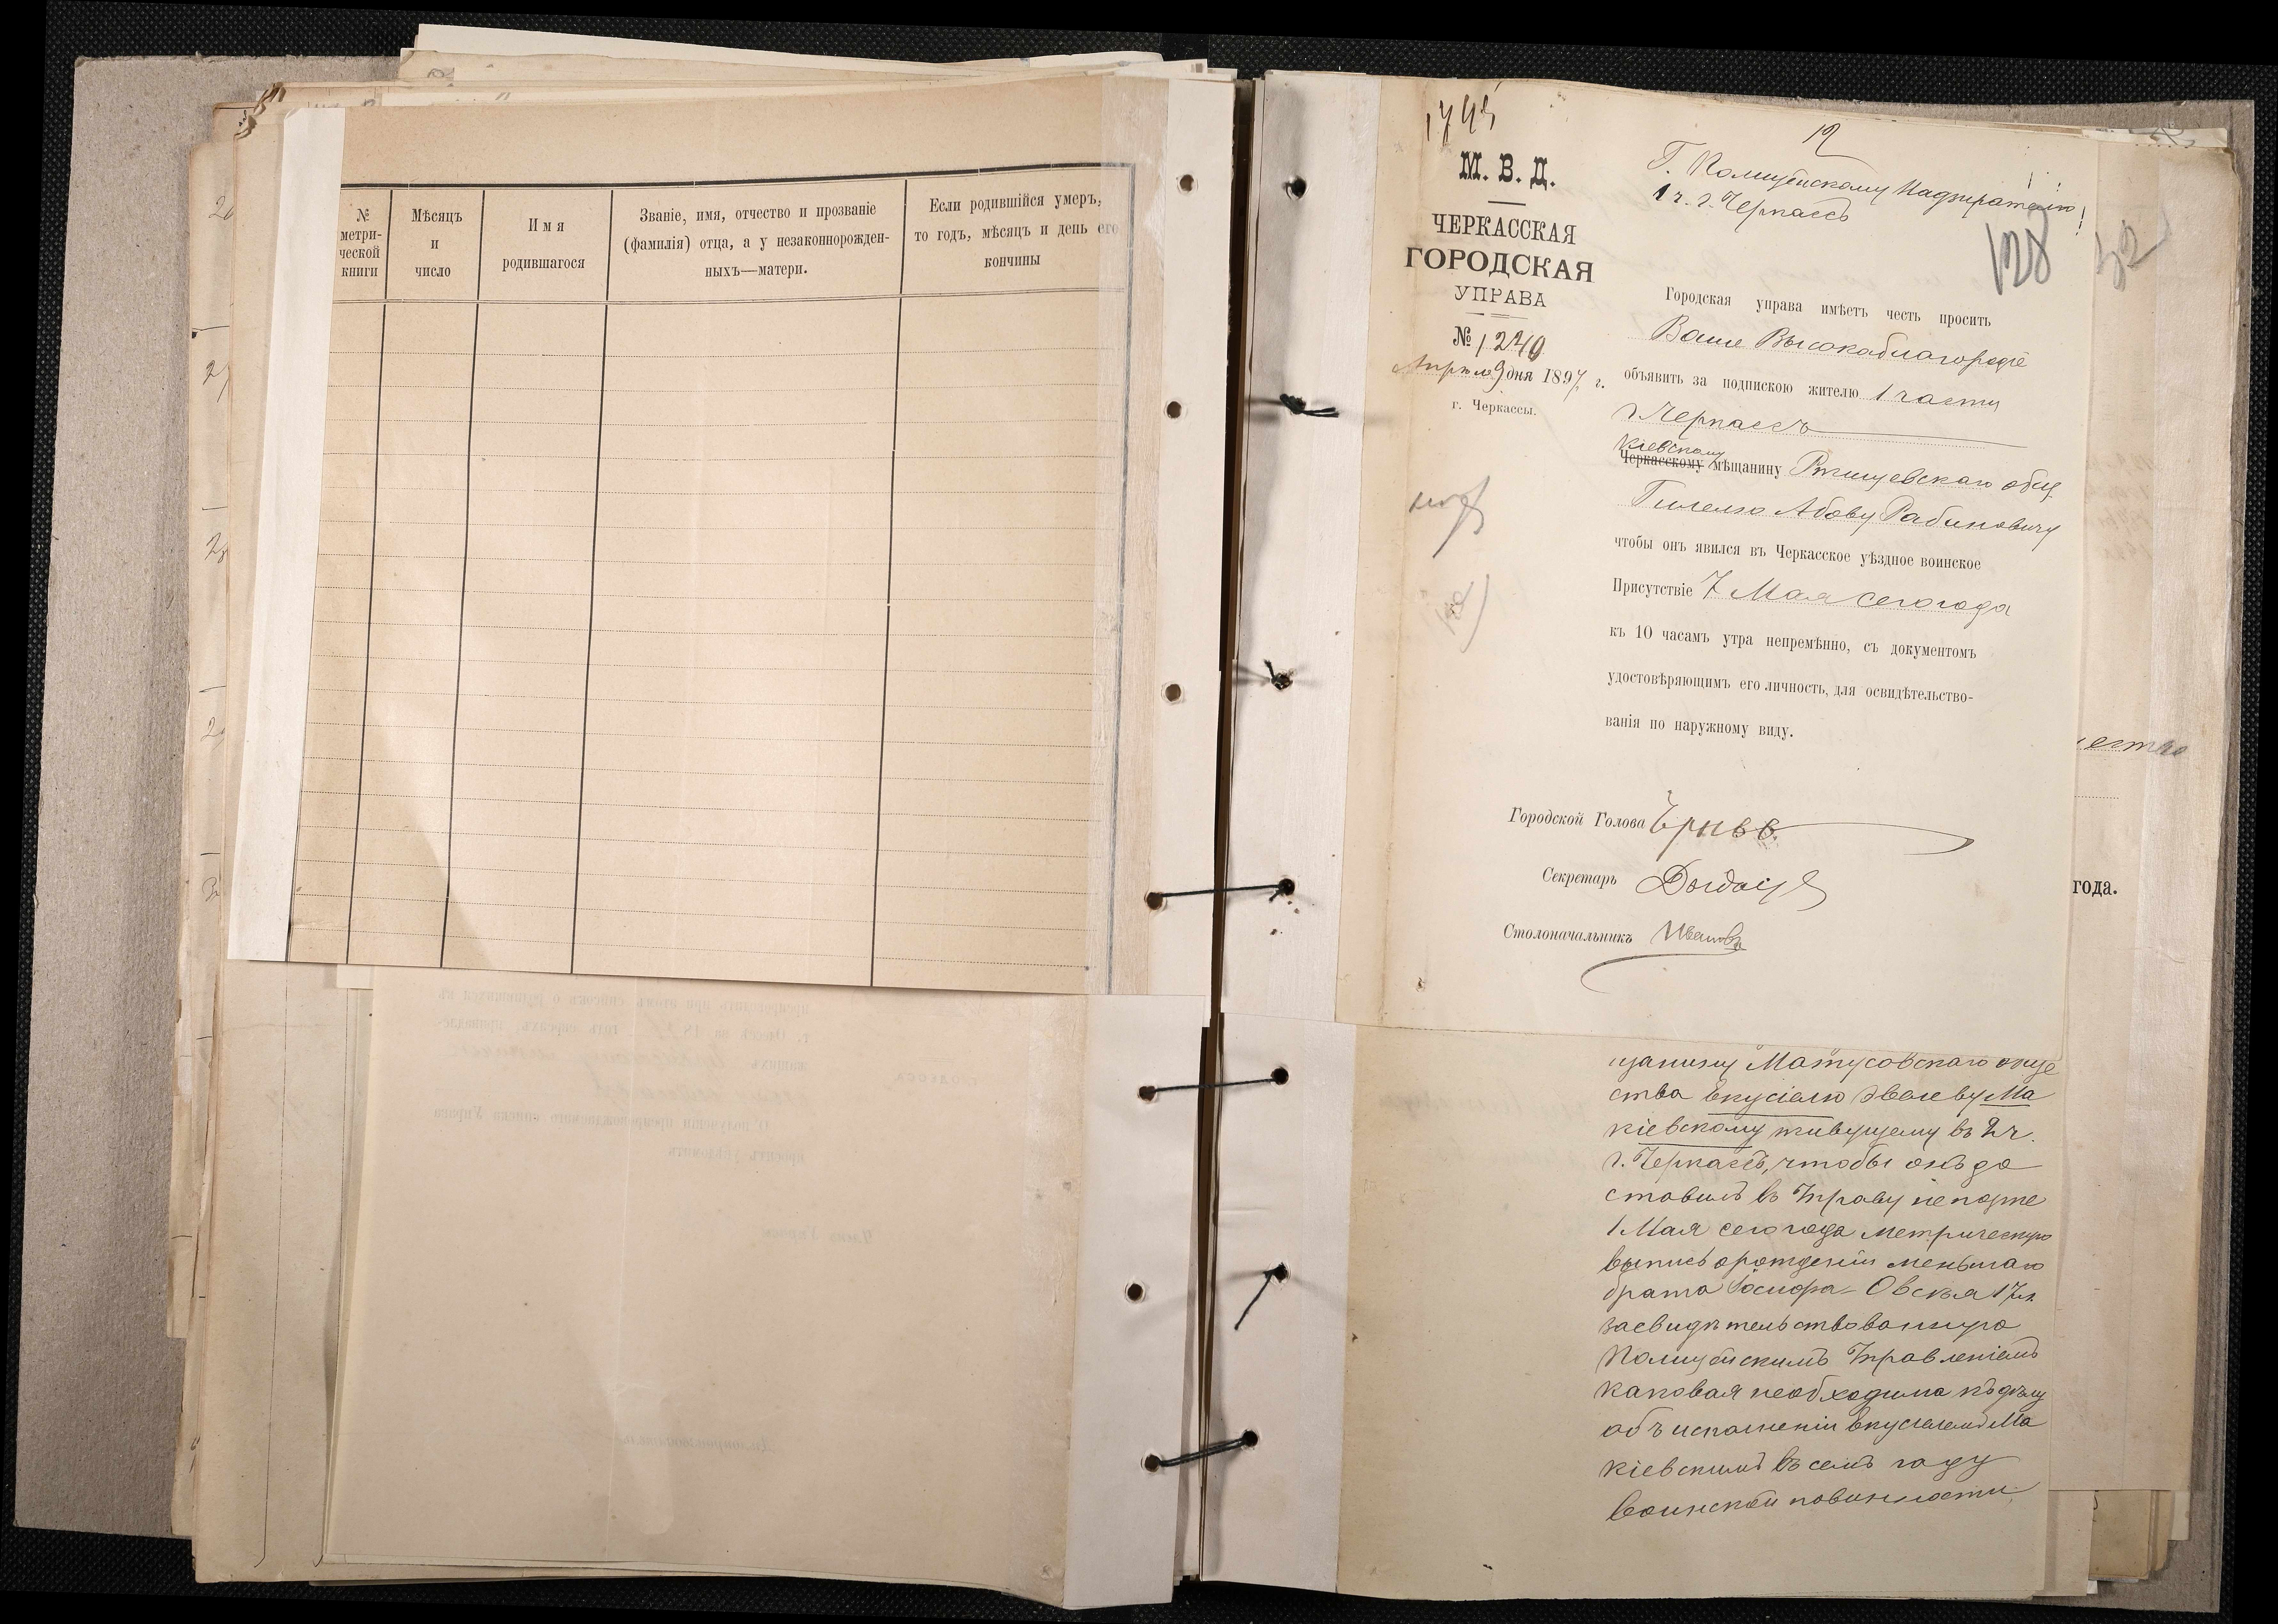 № метри-ческой книги
Мѣсяцъ и число
Имя родившагося
Званіе, имя, отчество и прозваніе
(фамилія) отца, а у незаконнорожден-
ныхъ—матери.
Если родившійся умеръ,
то годъ, мѣсяцъ и день его
кончины
М. В. Д.
ЧЕРКАССКАЯ
ГОРОДСКАЯ
УПРАВА
№ 1240
Апрѣля 9 дня 1897 г.
г. Черкассы.
12
Г. Полицейскому Надзирателю
1 ч. г. Черкассъ
128
32
Городская управа имѣетъ честь просить
Ваше Высокоблагородіе
объявить за подпискою жителю 1 части
г. Черкассъ
Кіевскому
Черкасскому мѣщанину Ртищевскаго общ.
Гилелю Абову Рабиновичу
чтобы онъ явился въ Черкасское уѣздное воинское
Присутствіе 7 Мая сего года
къ 10 часамъ утра непремѣнно, съ документомъ
удостовѣряющимъ его личность, для освидѣтельство-
ванія по наружному виду.
Городской Голова
Секретарь
Столоначальникъ Ивановъ
года.
щанину Матусовскаго обще
ства Екусіелю Эвелеву Ма
кіевскому живущему въ 2 ч.
г. Черкассъ, чтобы онъ до
ставилъ въ Управу не позже
1 Мая сего года метрическую
выпись о рожденіи меньшаго
брата Іосифа-Овсея 17 л.
засвидѣтельствованную
Полицейскимъ Управленіемъ
каковая необходима къ дѣлу
объ исполненіи Екусіелемъ Ма
кіевскимъ въ семъ году
воинской повинности